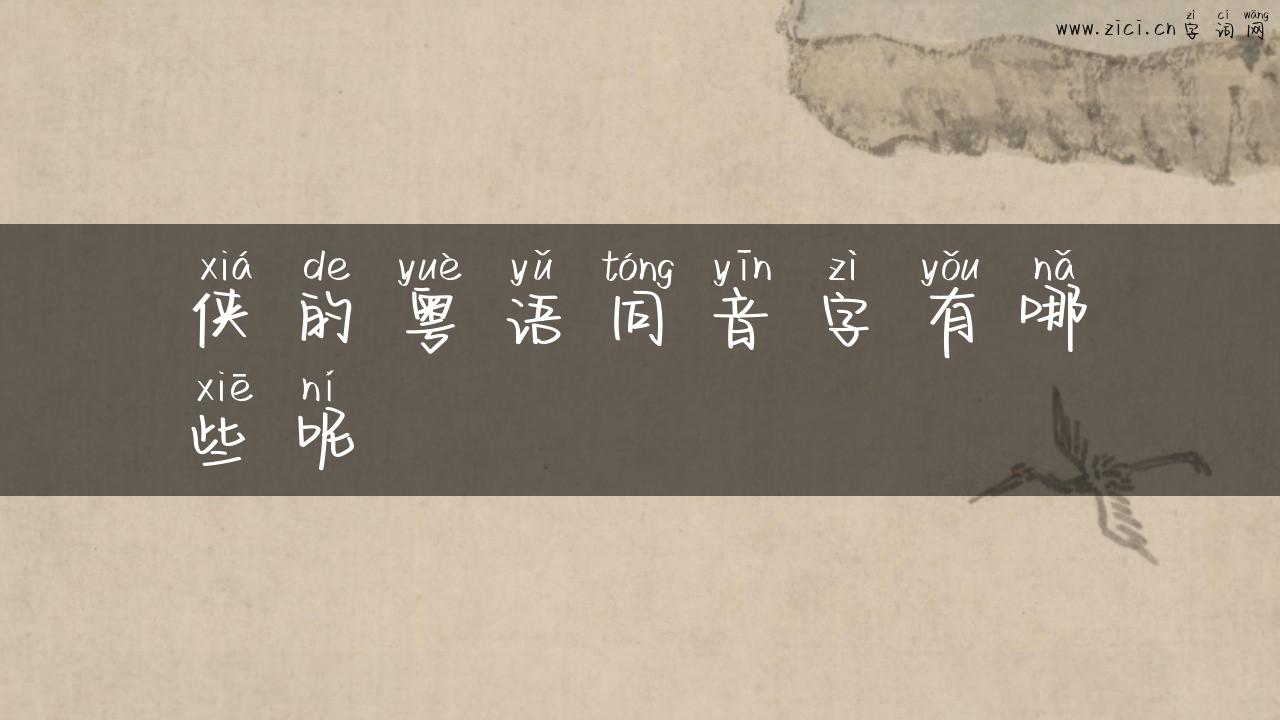 zì cí wǎng
www.zici.cn 字词网
xiá de yuè yǔ tóng yīn zì yǒu nǎ
侠的粤语同音字有哪
xiē ní
些呢